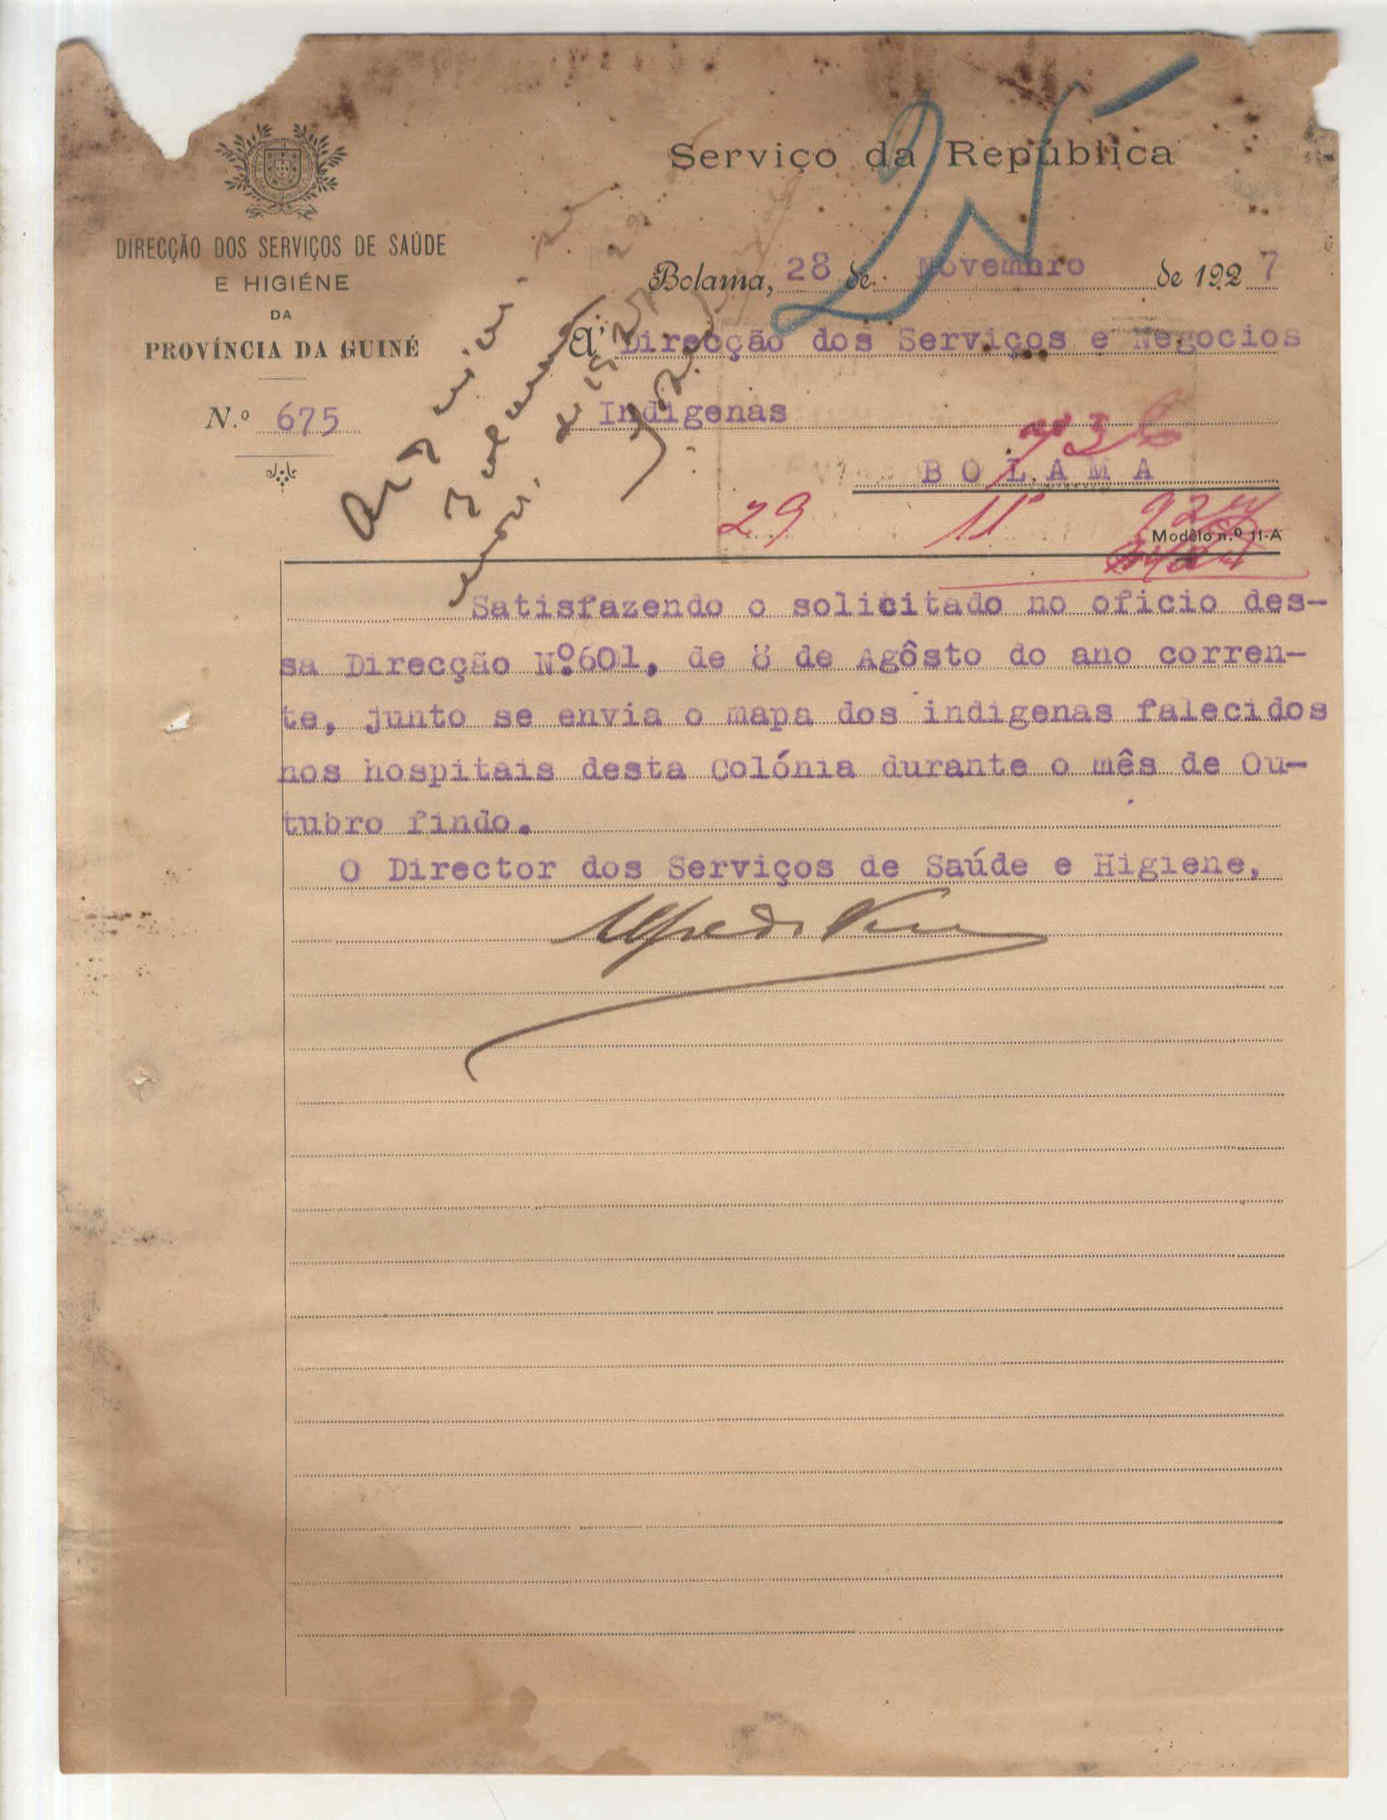 Serviço da República
DIRECÇÃO DOS SERVIÇOS DE SAÚDE
E HIGIÉNE
DA
PROVÍNCIA DA GUINÉ
N.º 675
Bolama, 28 de Novembro de 1927
Á Direcção dos Serviços e Negocios
Indigenas
BOLAMA
29 11 927
Modêlo n.º 11-A
Satisfazendo o solicitado no oficio des-
sa Direcção Nº.601, de 8 de Agôsto do ano corren-
te, junto se envia o mapa dos indigenas falecidos
nos hospitais desta Colónia durante o mês de Ou-
tubro findo.
O Director dos Serviços de Saúde e Higiene,
Alfredo